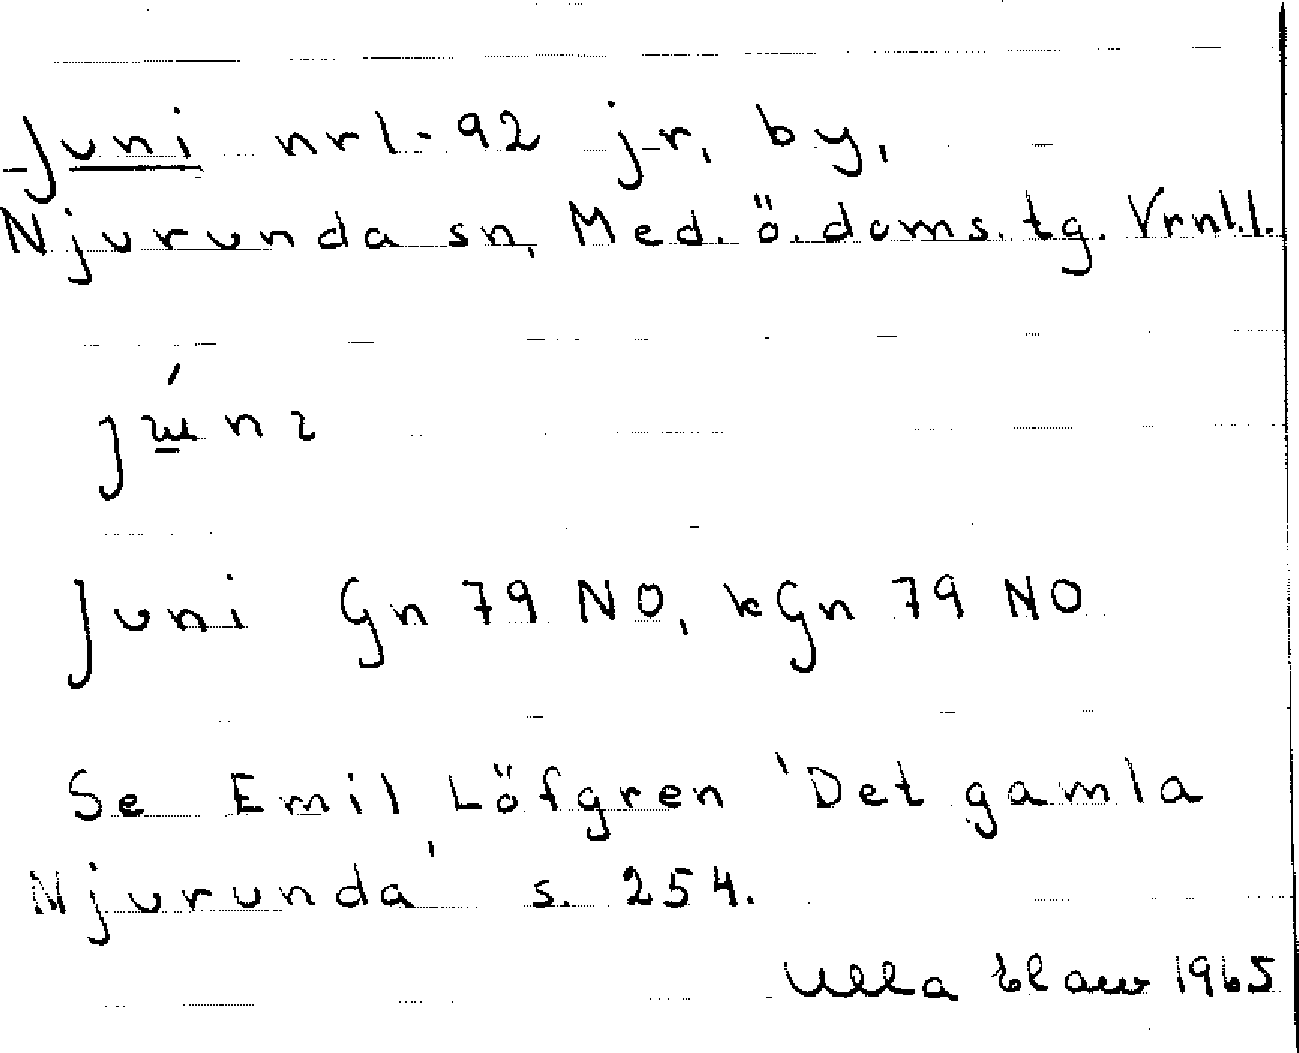 Juni nr 1-92 jr, by,
Njurunda sn, Med. ö. doms. tg. Vrnl.l.
Juni Gn 79 NO, kGn 79 NO
Se Emil Löfgren 'Det gamla
Njurunda' s. 254.
Ulla 1965